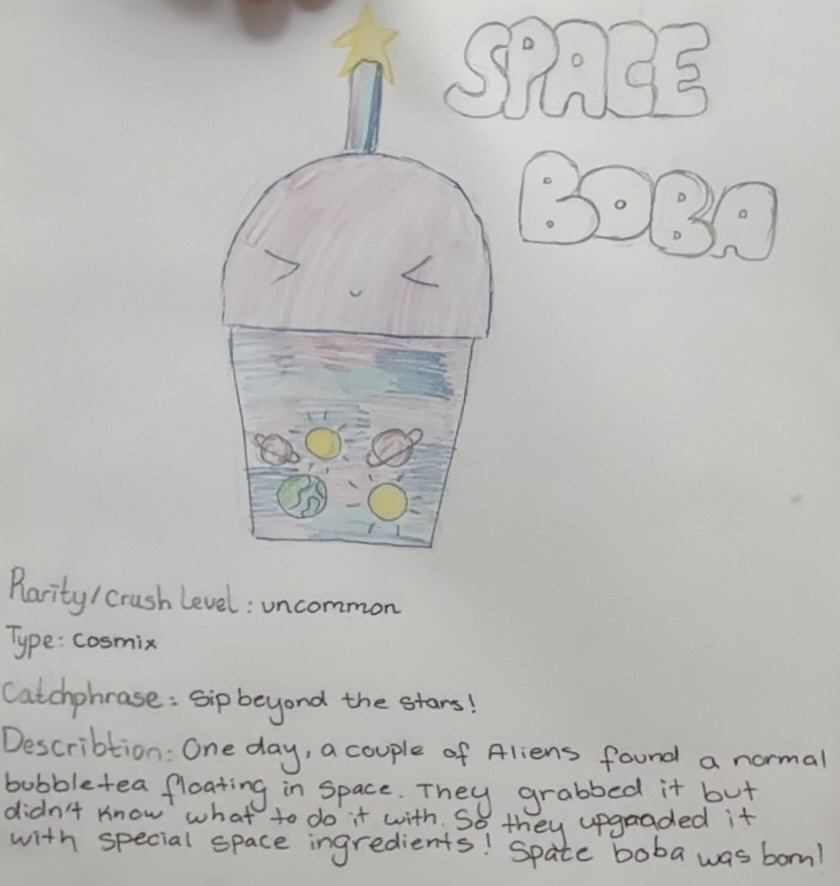 SPACE
BOBA
Rarity/Crush Level: uncommon
Type: Cosmix
Catchphrase: Sip beyond the stars!
Describtion: One day, a couple of Aliens found a normal
bubble tea floating in space. They grabbed it but
didn't know what to do it with. So they upgraded it
with special space ingredients! Space boba was born!